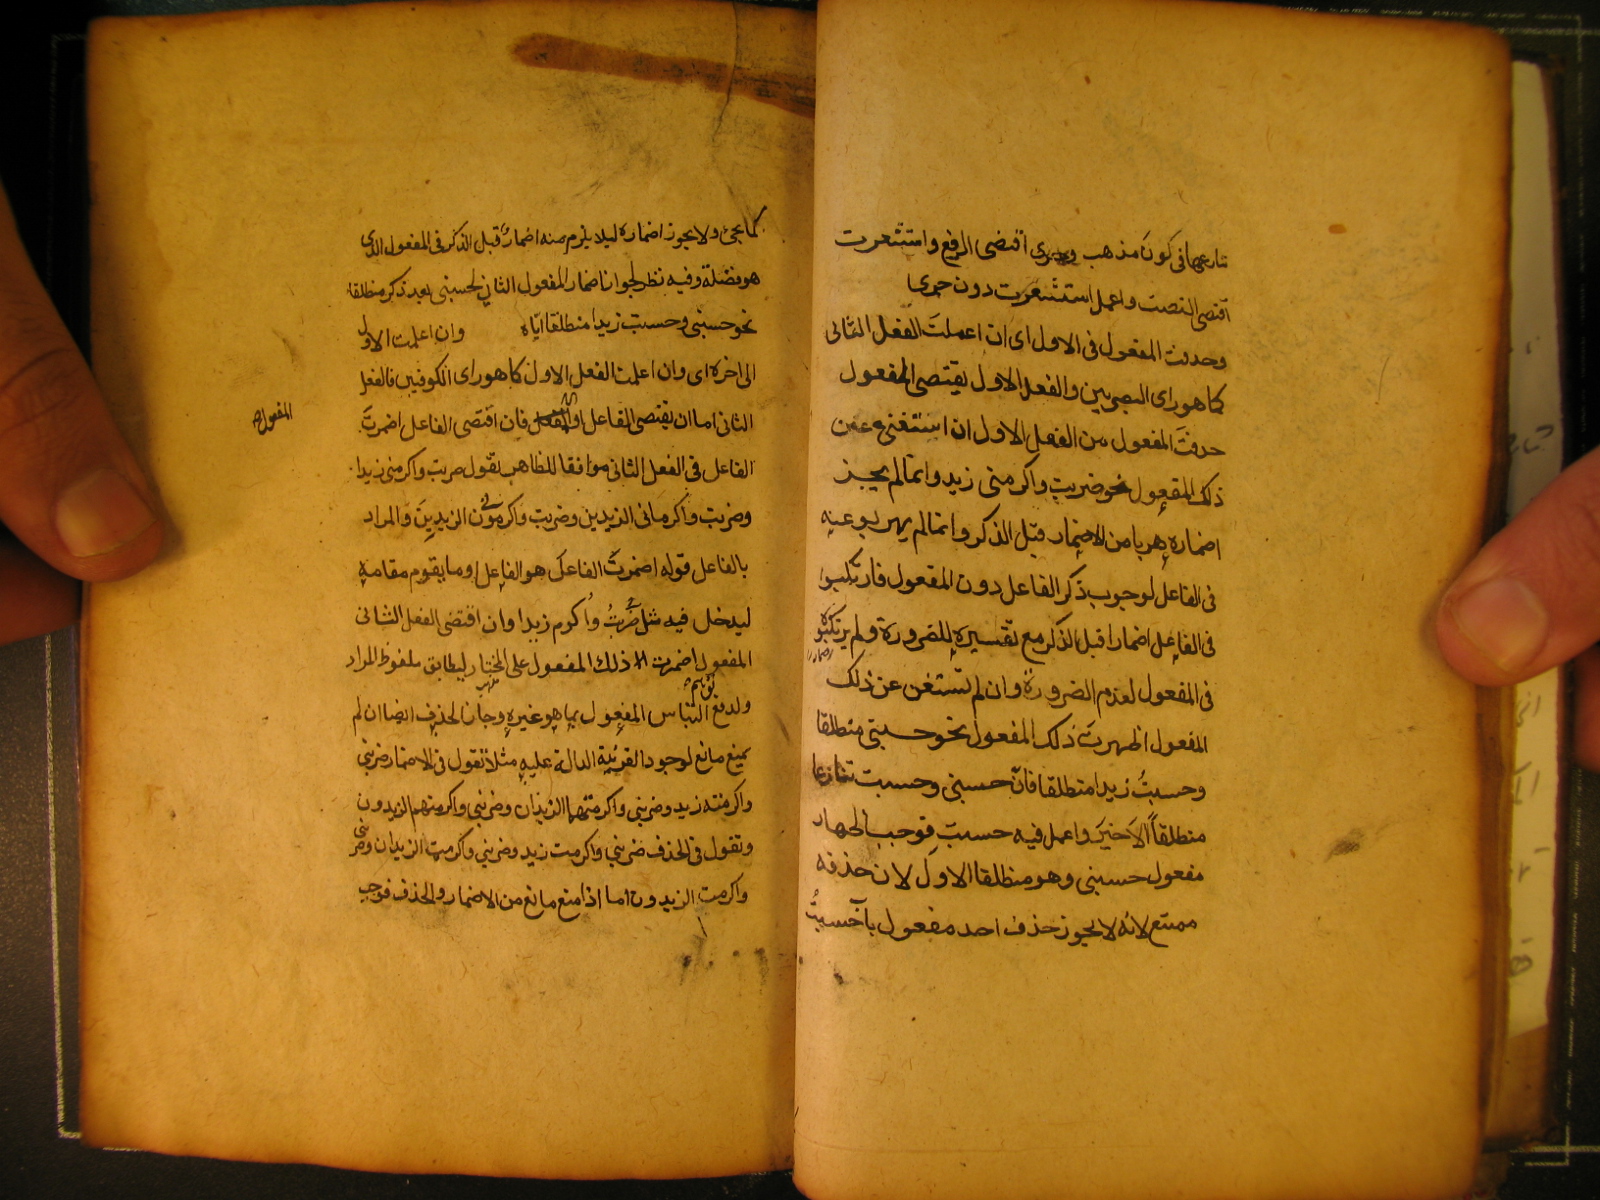 تنازعها في كون مذهب وجرى اقتضى الرفع واستشعرت
اقتضى النصب واعمل استشعرت دون جرى
وحذفت المفعول في الاول اى ان اعملت الفعل الثانى
كما هو راى البصريين والفعل الاول يقتضى المفعول
حذفت المفعول من الفعل الاول ان استغنى عن
ذلك المفعول نحو ضربت واكرمنى زيد وانما لم يجز
اضماره هربا من الاضمار قبل الذكر وانما لم يهربوا عنه
فى الفاعل لوجوب ذكر الفاعل دون المفعول فارتكبوا
فى الفاعل اضمارا قبل الذكر مع تفسيره للضرورة ولم يرتكبوه
فى المفعول لعدم الضرورة وان لم تستغن عن ذلك
المفعول اظهرت ذلك المفعول نحو حسبنى منطلقا
وحسبت زيدا منطلقا فان حسبنى وحسبت تنازعا
منطلقاً الاخير واعمل فيه حسبت فوجب اظهار
مفعول حسبنى وهو منطلقا الاول لان حذفه
ممتنع لانه لا يجوز حذف احد مفعول باب حسبت
كما يجئ ولا يجوز اضماره ليلا يلزم منه اضمار قبل الذكر فى المفعول الذى
هو فضلة وفيه نظر لجواز اضمار المفعول الثانى لحسبنى بعد ذكر منطلقا
نحو حسبنى وحسبت زيدا منطلقا اياه وان اعملت الاول
الى اخره اى وان اعملت الفعل الاول كما هو راى الكوفيين فالفعل
الثانى اما ان يقتضى الفاعل او فان اقتضى الفاعل اضمرت
المفعول
الفاعل فى الفعل الثانى موافقا للظاهر تقول ضربت واكرمنى زيدا
وضربت واكرمانى الزيدين وضربت واكرمونى الزيدين والمراد
بالفاعل قوله اضمرت الفاعل هو الفاعل او ما يقوم مقامه
ليدخل فيه مثل ضربت واُكرم زيدا وان اقتضى الفعل الثانى
المفعول اضمرت ذلك المفعول على المختار ليطابق ملفوظ المراد
ولدفع توهم التباس المفعول بما هو غيره وجاز الحذف ايضا ان لم
يمنع مانع لوجود القرينة الدالة عليه مثلا تقول فى الاضمار ضربنى
واكرمته زيد وضربنى واكرمتهما الزيدان وضربنى واكرمتهم الزيدون
وتقول فى الحذف ضربنى واكرمت زيد وضربنى واكرمت الزيدان وضربنى
واكرمت الزيدون اما اذا منع مانع من الاضمار والحذف فوجب